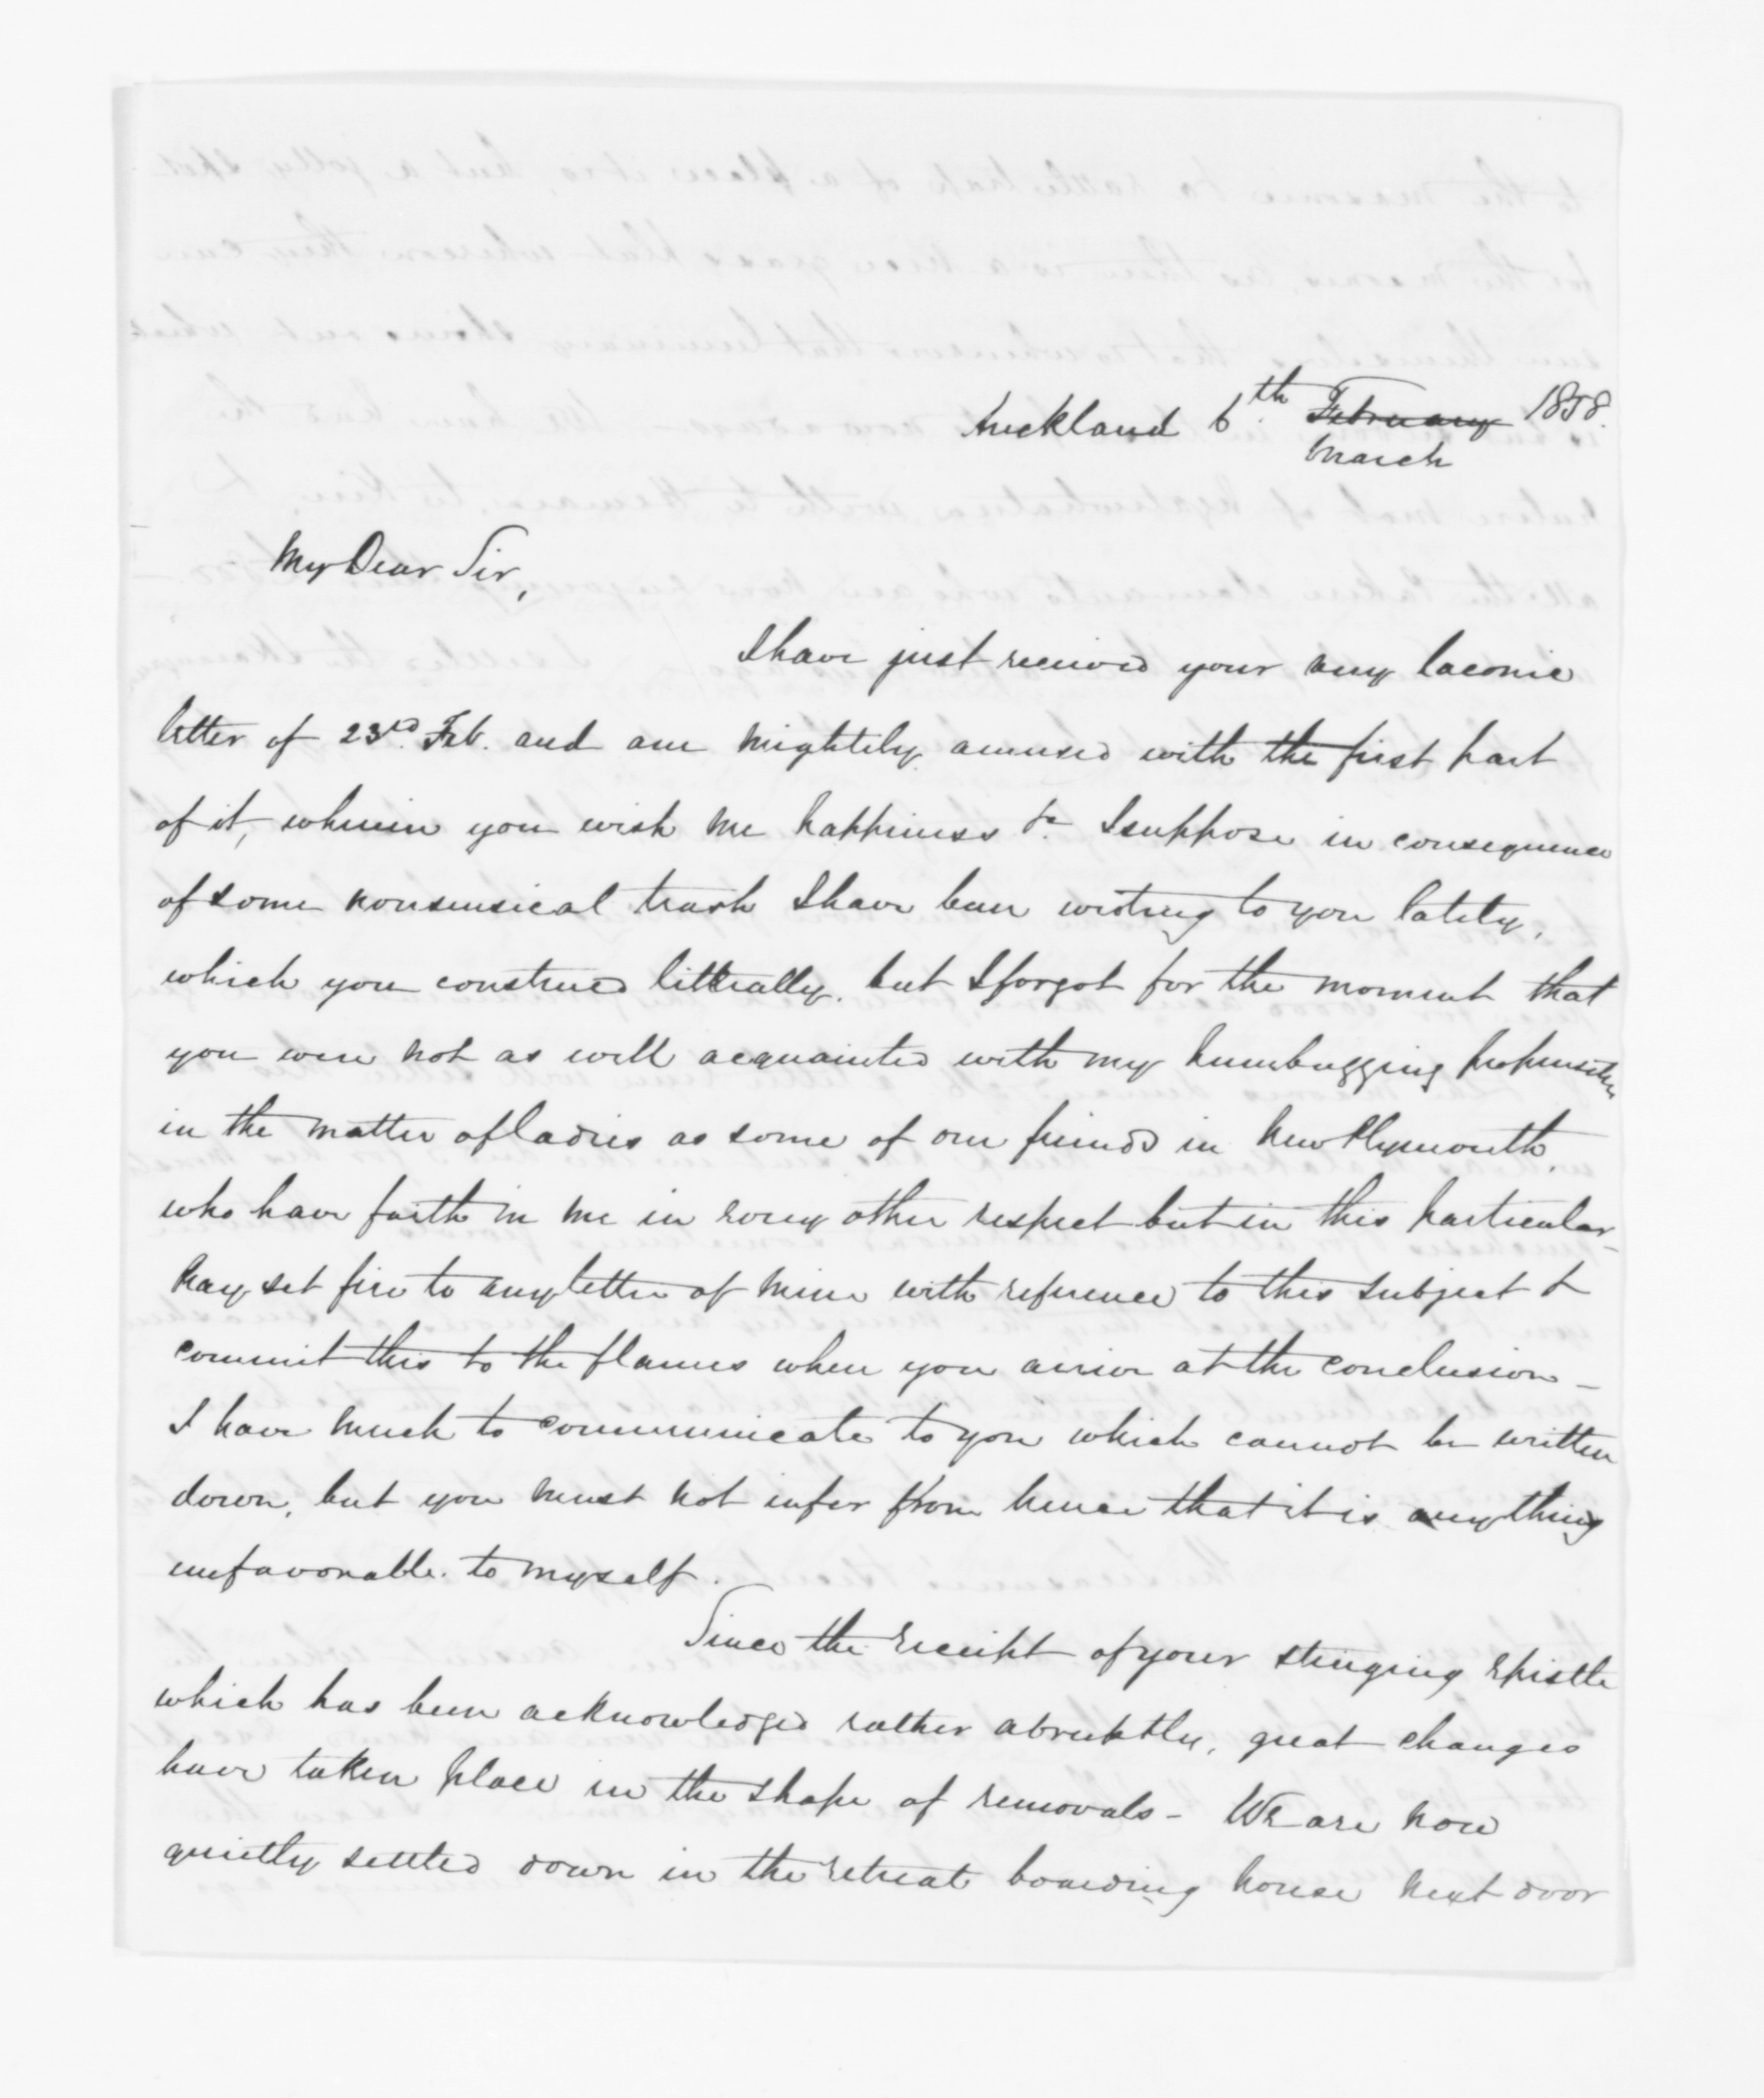 Auckland 6th. February 1858.
March
My Dear Sir,
I have just received your very laconic
letter of 23rd. Feb. and am mightily amused with the first part
of it, wherein you wish me happiness &c I suppose in consequence
of some nonsensical trash I have been writing to you lately,
which you construed litterally. but I forgot for the moment that
you were not as well acquainted with my humbugging propensities
in the matter of ladies as some of our friends in New Plymouth,
who have faith in me in every other respect but in this particular -
Pray set fire to any letter of mine with reference to this subject &
commit this to the flames when you arrive at the conclusion -
I have much to communicate to you which cannot be written
down, but you must not infer from hence that it is anything
unfavorable to myself.
Since the receipt of your stinging epistle
which has been acknowledged rather abruptly, great changes
have taken place in the shape of removals - We are now
quietly settled down in the retreat boarding house next door